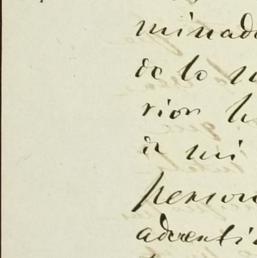 minad
de lo
rion h
á mi
person
adverti